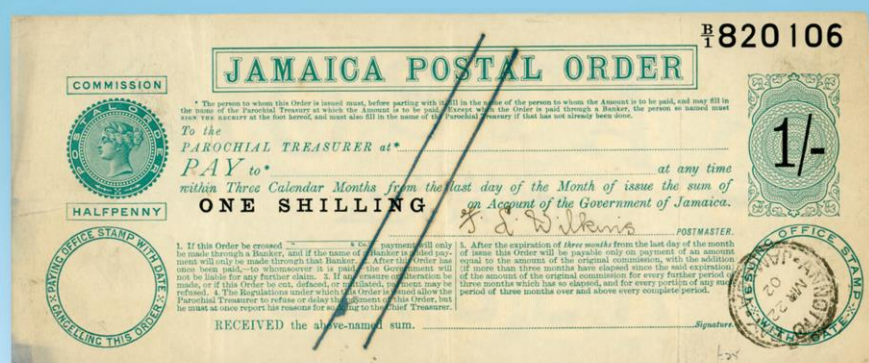 B/1 820106
JAMAICA POSTAL ORDER
COMMISSION
POSTAL ORDER
HALFPENNY
* The person to whom this Order is issued must, before parting with it, fill in the name of the person to whom the Amount is to be paid, and may fill in
the name of the Parochial Treasury at which the Amount is to be paid. Except when the Order is paid through a Banker, the person so named must
SIGN THE RECEIPT at the foot hereof, and must also fill in the name of the Parochial Treasury if that has not already been done.
To the
PAROCHIAL TREASURER at*
PAY to* at any time
within Three Calendar Months from the last day of the Month of issue the sum of
ONE SHILLING on Account of the Government of Jamaica.
1/-
F. L. Wilkins
POSTMASTER.
PAYING OFFICE STAMP WITH DATE
CANCELLING THIS ORDER
1. If this Order be crossed " & Co." payment will only
be made through a Banker, and if the name of a Banker is added pay-
ment will only be made through that Banker. 2. After this Order has
once been paid,—to whomsoever it is paid,—the Government will
not be liable for any further claim. 3. If any erasure or alteration be
made, or if this Order be cut, defaced, or mutilated, payment may be
refused. 4. The Regulations under which this Order is issued allow the
Parochial Treasurer to refuse or delay the payment of this Order, but
he must at once report his reasons for so doing to the Chief Treasurer.
5. After the expiration of three months from the last day of the month
of issue this Order will be payable only on payment of an amount
equal to the amount of the original commission, with the addition
(if more than three months have elapsed since the said expiration)
of the amount of the original commission for every further period of
three months which has so elapsed, and for every portion of any such
period of three months over and above every complete period.
ISSUING OFFICE STAMP
WITH DATE
MR 22
02
RECEIVED the above-named sum.
Signature.